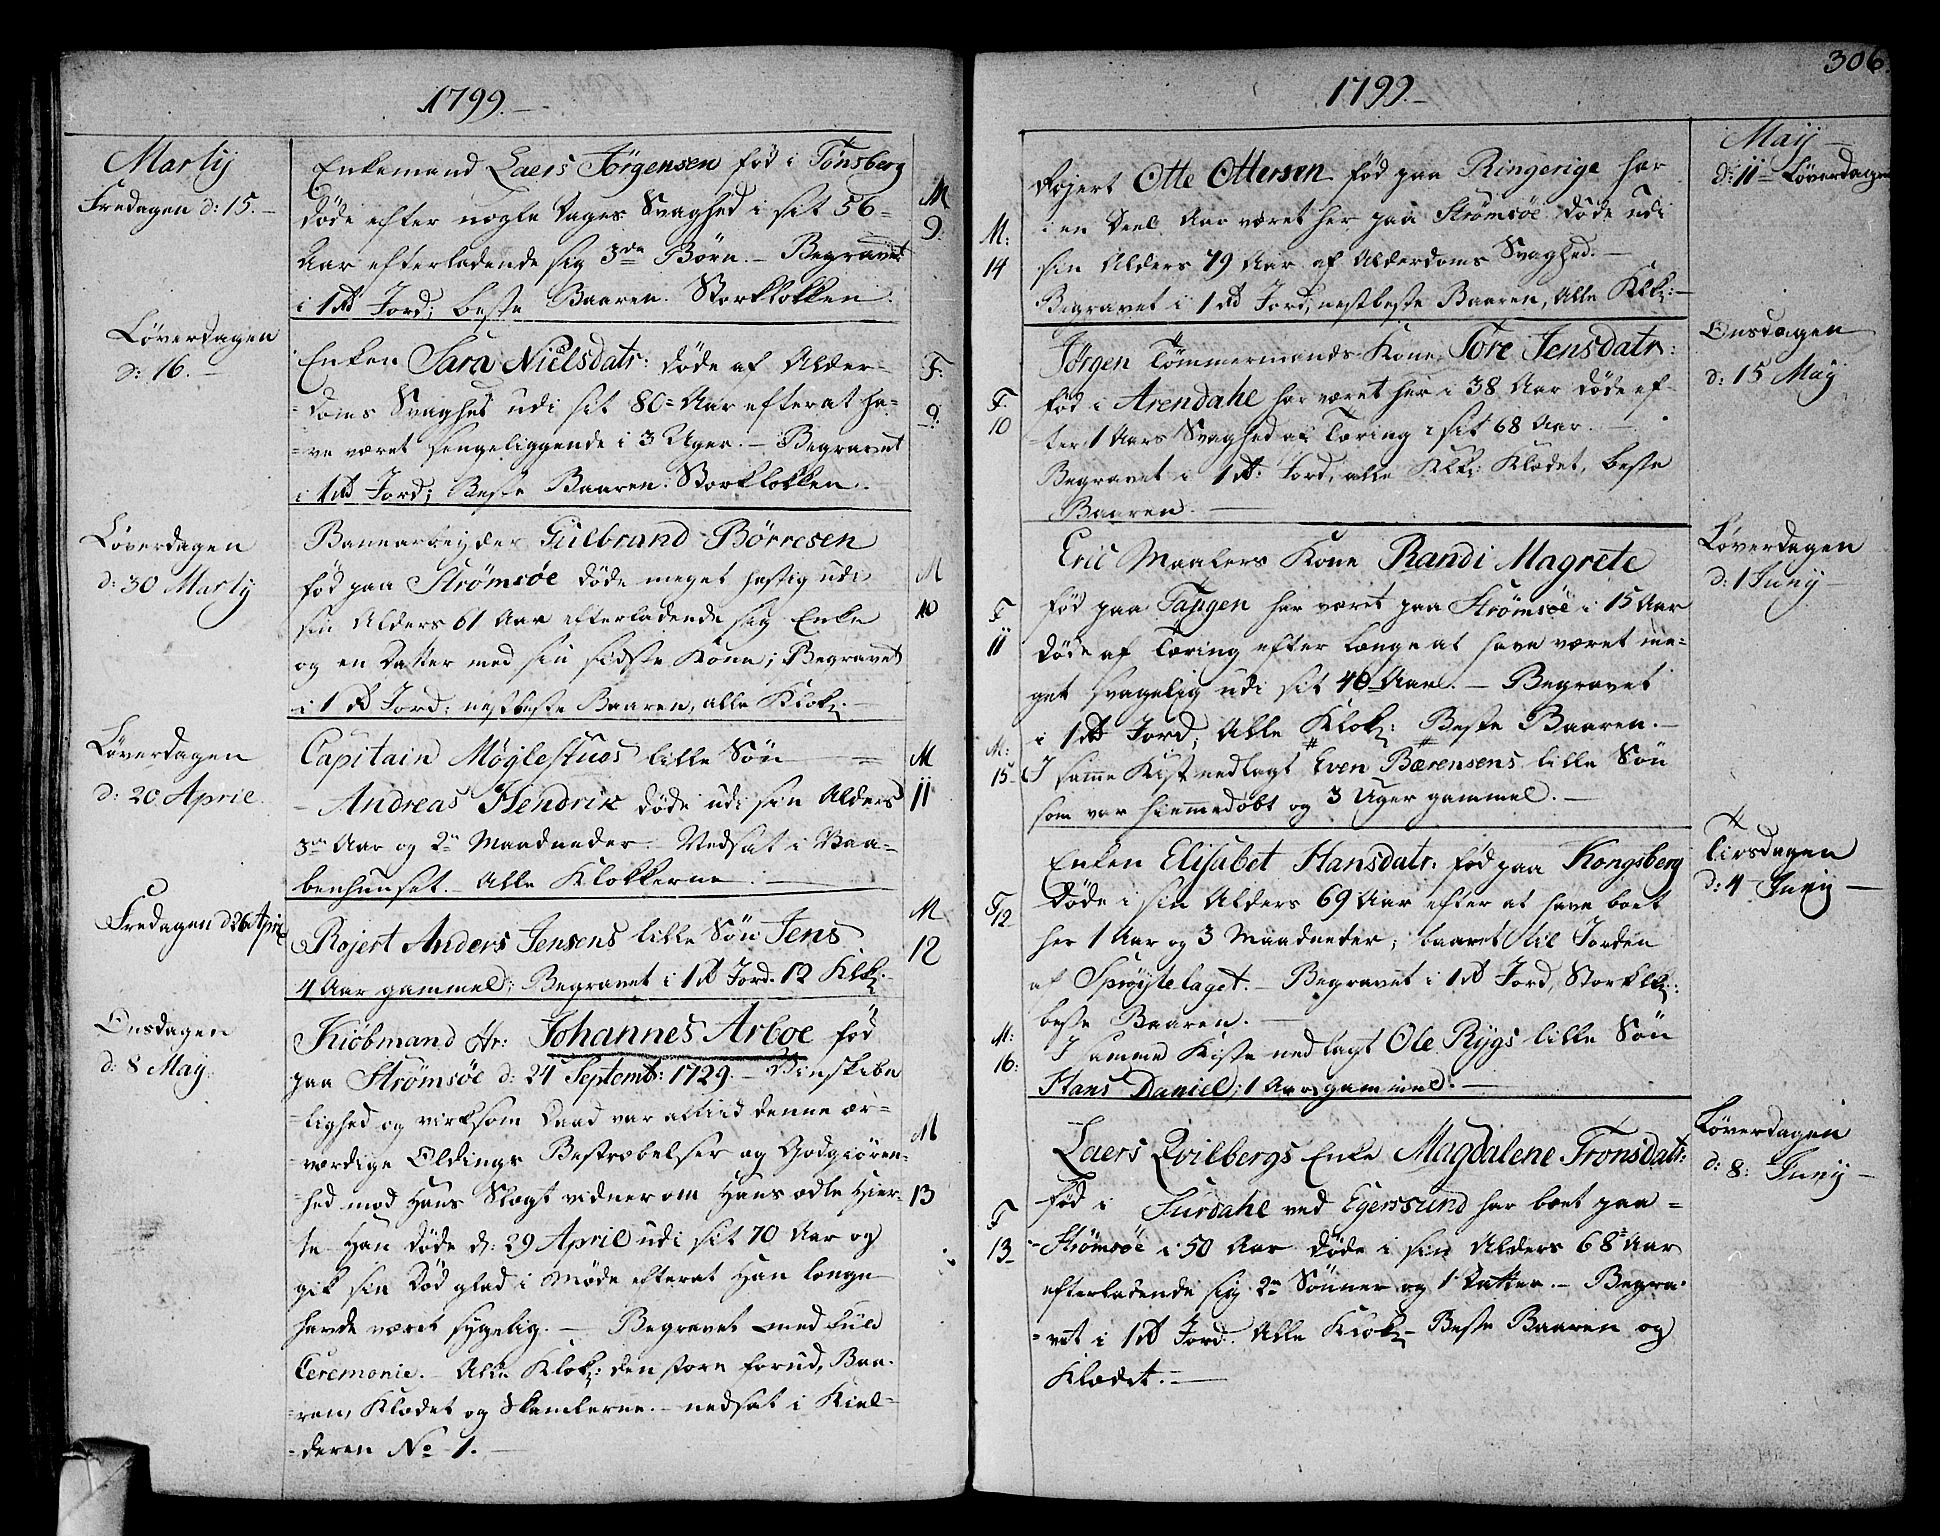 1799.
Marty
Fredagen d: 15.
Enkemand Laers Jörgensen fød i Tønsberg
døde efter nogle Dages Svaghed i sit 56=
Aar efterladende sig 3de Börn. - Begravet
i 1ste Jord; beste Baaren. Storklokken.
M
9.
Løverdagen
d: 16.
Enken Sara Nielsdatr: døde af Alder=
=doms Svaghed udi sit 80= Aar efter at ha=
=ve været sengeliggende i 3 Uger. - Begravet
i 1ste Jord; Beste Baaren. Storklokken.
F.
9.
Løverdagen
d: 30 Marty
Gulbrand Börresen
fød paa Strömsöe døde meget hastig udi
sin Alders 61 Aar efterladende sig Enke
og en Datter med sin sidste Kone; Begravet
i 1ste Jord; nestbeste Baaren, alle Klok:
M
10
Løverdagen
d: 20 Aprill
Capitain Møglestues lille Sön
- Andreas Hendrik døde udi sin Alders
3die Aar og 2den Maaneder. Nedsat i Baa=
benhuuset. Alle Klokkerne.
M
11
Fredagen d 26 April
Rojert Anders Jensens lille Sön Jens
4 Aar gammel; Begravet i 1ste Jord. 12 Klk:
M
12
Onsdagen
d: 8 May.
Kiöbmand Hr: Johannes Arboe fød
paa Strömsöe d: 24 Septembr: 1729. - Vinskibe
lighed og virksom Daad var altiid denne ær=
=værdige Oldings Bestræbelser og Godgiören=
=hed mod Hans Slægt vidner om Hans ædle Hier=
te. Han døde d: 29 April udi sit 70 Aar og
gik sin Död glad i Møde efter at Han længe
havde været sygelig. - Begravet med fuld
Ceremonie. - Alle Klok: den store forud, Baa=
=ren, Klædet og Skamlerne. - nedsat i Kiel=
=deren No 1.
M
13
306.
1799.
May
d: 11 Løverdagen
M:
14
Rojert Otte Ottersen fød paa Ringerige har
i en Deel Aar været her paa Strömsöe døde udi
sin Alders 79 Aar af Alderdoms Svaghed. -
Begravet i 1ste Jord, nestbeste Baaren, Alle Klk:
Onsdagen
d: 15 May
F.
10
Jörgen Tømmermands Kone Tore Jensdatr:
fød i Arendahl har været her i 38 Aar døde ef=
=ter 1 Aars Svaghed af Tæring i sit 68 Aar.
Begravet i 1ste Jord, alle Klk: Klædet, beste
Baaren.
Løverdagen
d: 1 Juny
F
11
Eric Maalers Kone Randi Magrete
fød paa Tangen har været paa Strömsöe i 15 Aar
døde af Tæring efter længe at have været me=
get svagelig udi sit 40 Aar. - Begravet
i 1ste Jord, Alle Klok: Beste Baaren. -
M:
15
I samme Kist nedlagt Even Bærensens lille Sön
som var hiemmedöbt og 3 Uger gammel. -
Tirsdagen
d: 4 Juny
F
12
Enken Elisabet Hansdatr. fød paa Kongsberg
Døde i sin Alders 69 Aar efter at have boet
her 1 Aar og 3 Maaneder; baaret til Jorden
af Spröytelaget. - Begravet i 1ste Jord, Stor Klk:
beste Baaren. -
M:
16:
I samme Kiste nedlagt Ole Rygs lille Sön
Hans Daniel; 1 Aar gammel. -
Løverdagen
d: 8: Juny
F
13
Laers Qvilbergs Enke Magdalene Tronsdatr:
fød i Surdahl ved Egersund har boet paa =
=Strömsöe i 50 Aar døde i sin Alders 68 Aar
efterladende sig 2de Sönner og 1 Datter. - Begra=
=vet i 1ste Jord. Alle Klok: Beste Baaren og
Klædet. -